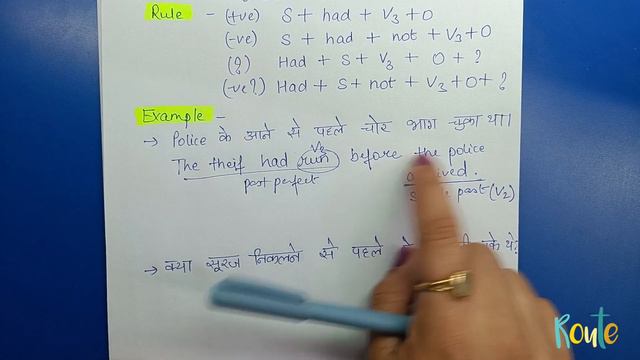 Rule - (+ve) S + had + V3 + O
(-ve) S + had + not + V3 + O
(?) Had + S + V3 + O + ?
(-ve?) Had + S + not + V3 + O + ?
Example -
→ Police के आने से पहले चोर भाग चुका था।
V3
The theif had run before the police
past perfect
past (V2)
→ क्या सूरज निकलने से पहले थे?
Route